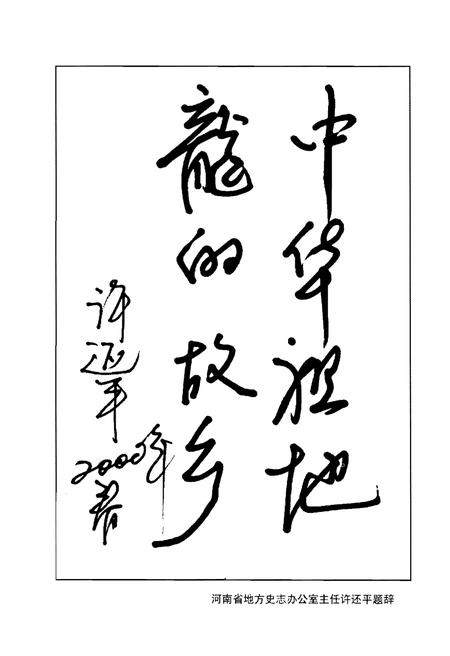 中华祖地
龍的故乡
许还平
2000年
春
河南省地方史志办公室主任许还平题辞